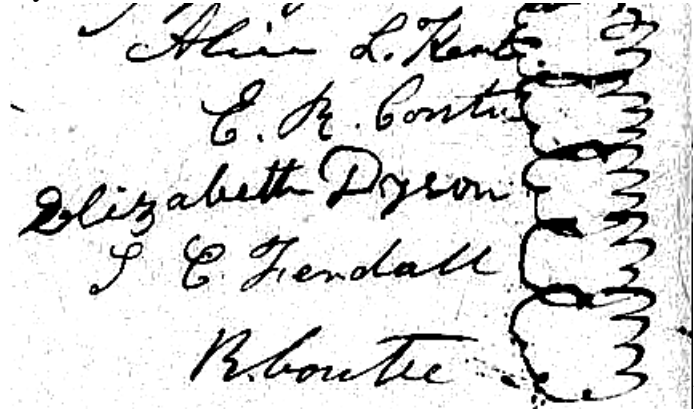 Alice L. Kent
E. R. Contee
Elizabeth Dyson
S C. Fendall
R. Contee